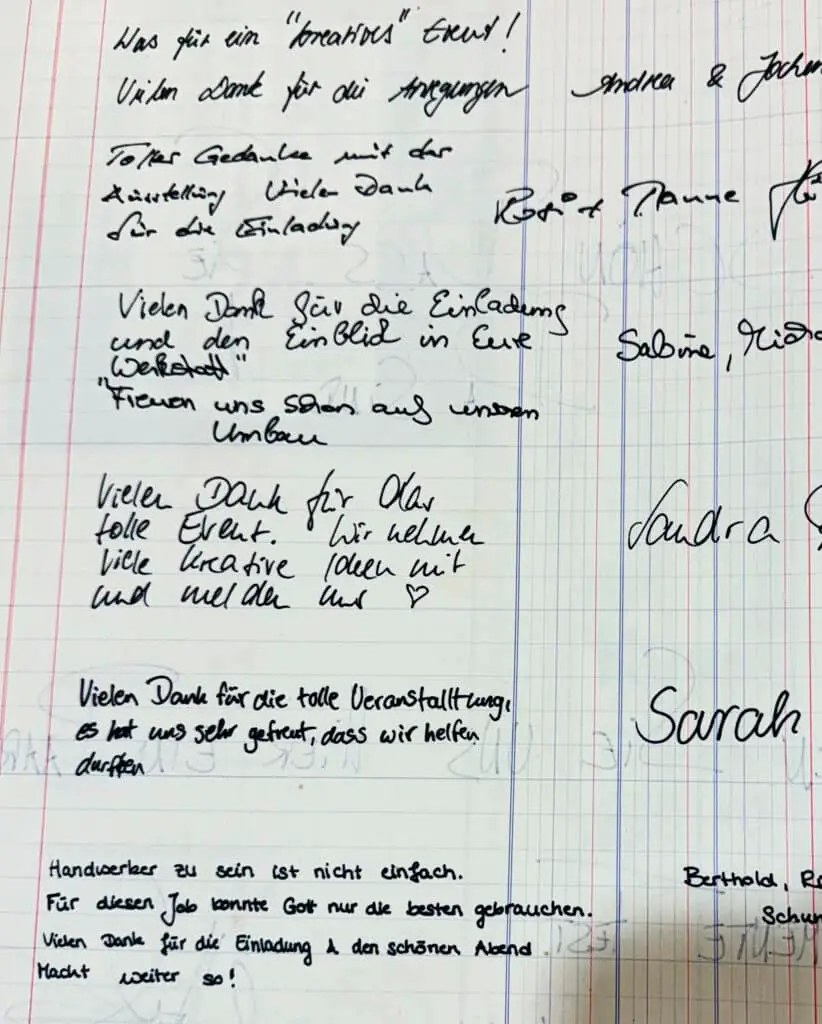 Was für ein "kreatives" Event!
Vielen Dank für die Anregungen Andrea & Jochen
Toller Gedanke mit der
Ausstellung Vielen Dank
für die Einladung
Rosi + Manne
Vielen Dank für die Einladung
und den Einblick in Eure
"Werkstatt"
Freuen uns schon auf unseren
Umbau
Sabine,
Vielen Dank für das
tolle Event. Wir nehmen
viele kreative Ideen mit
und melden uns ♡
Sandra
Vielen Dank für die tolle Veranstalttung,
es hat uns sehr gefreut, dass wir helfen
durften
Sarah
Handwerker zu sein ist nicht einfach.
Für diesen Job konnte Gott nur die besten gebrauchen.
Vielen Dank für die Einladung & den schönen Abend
Macht weiter so!
Berthold,